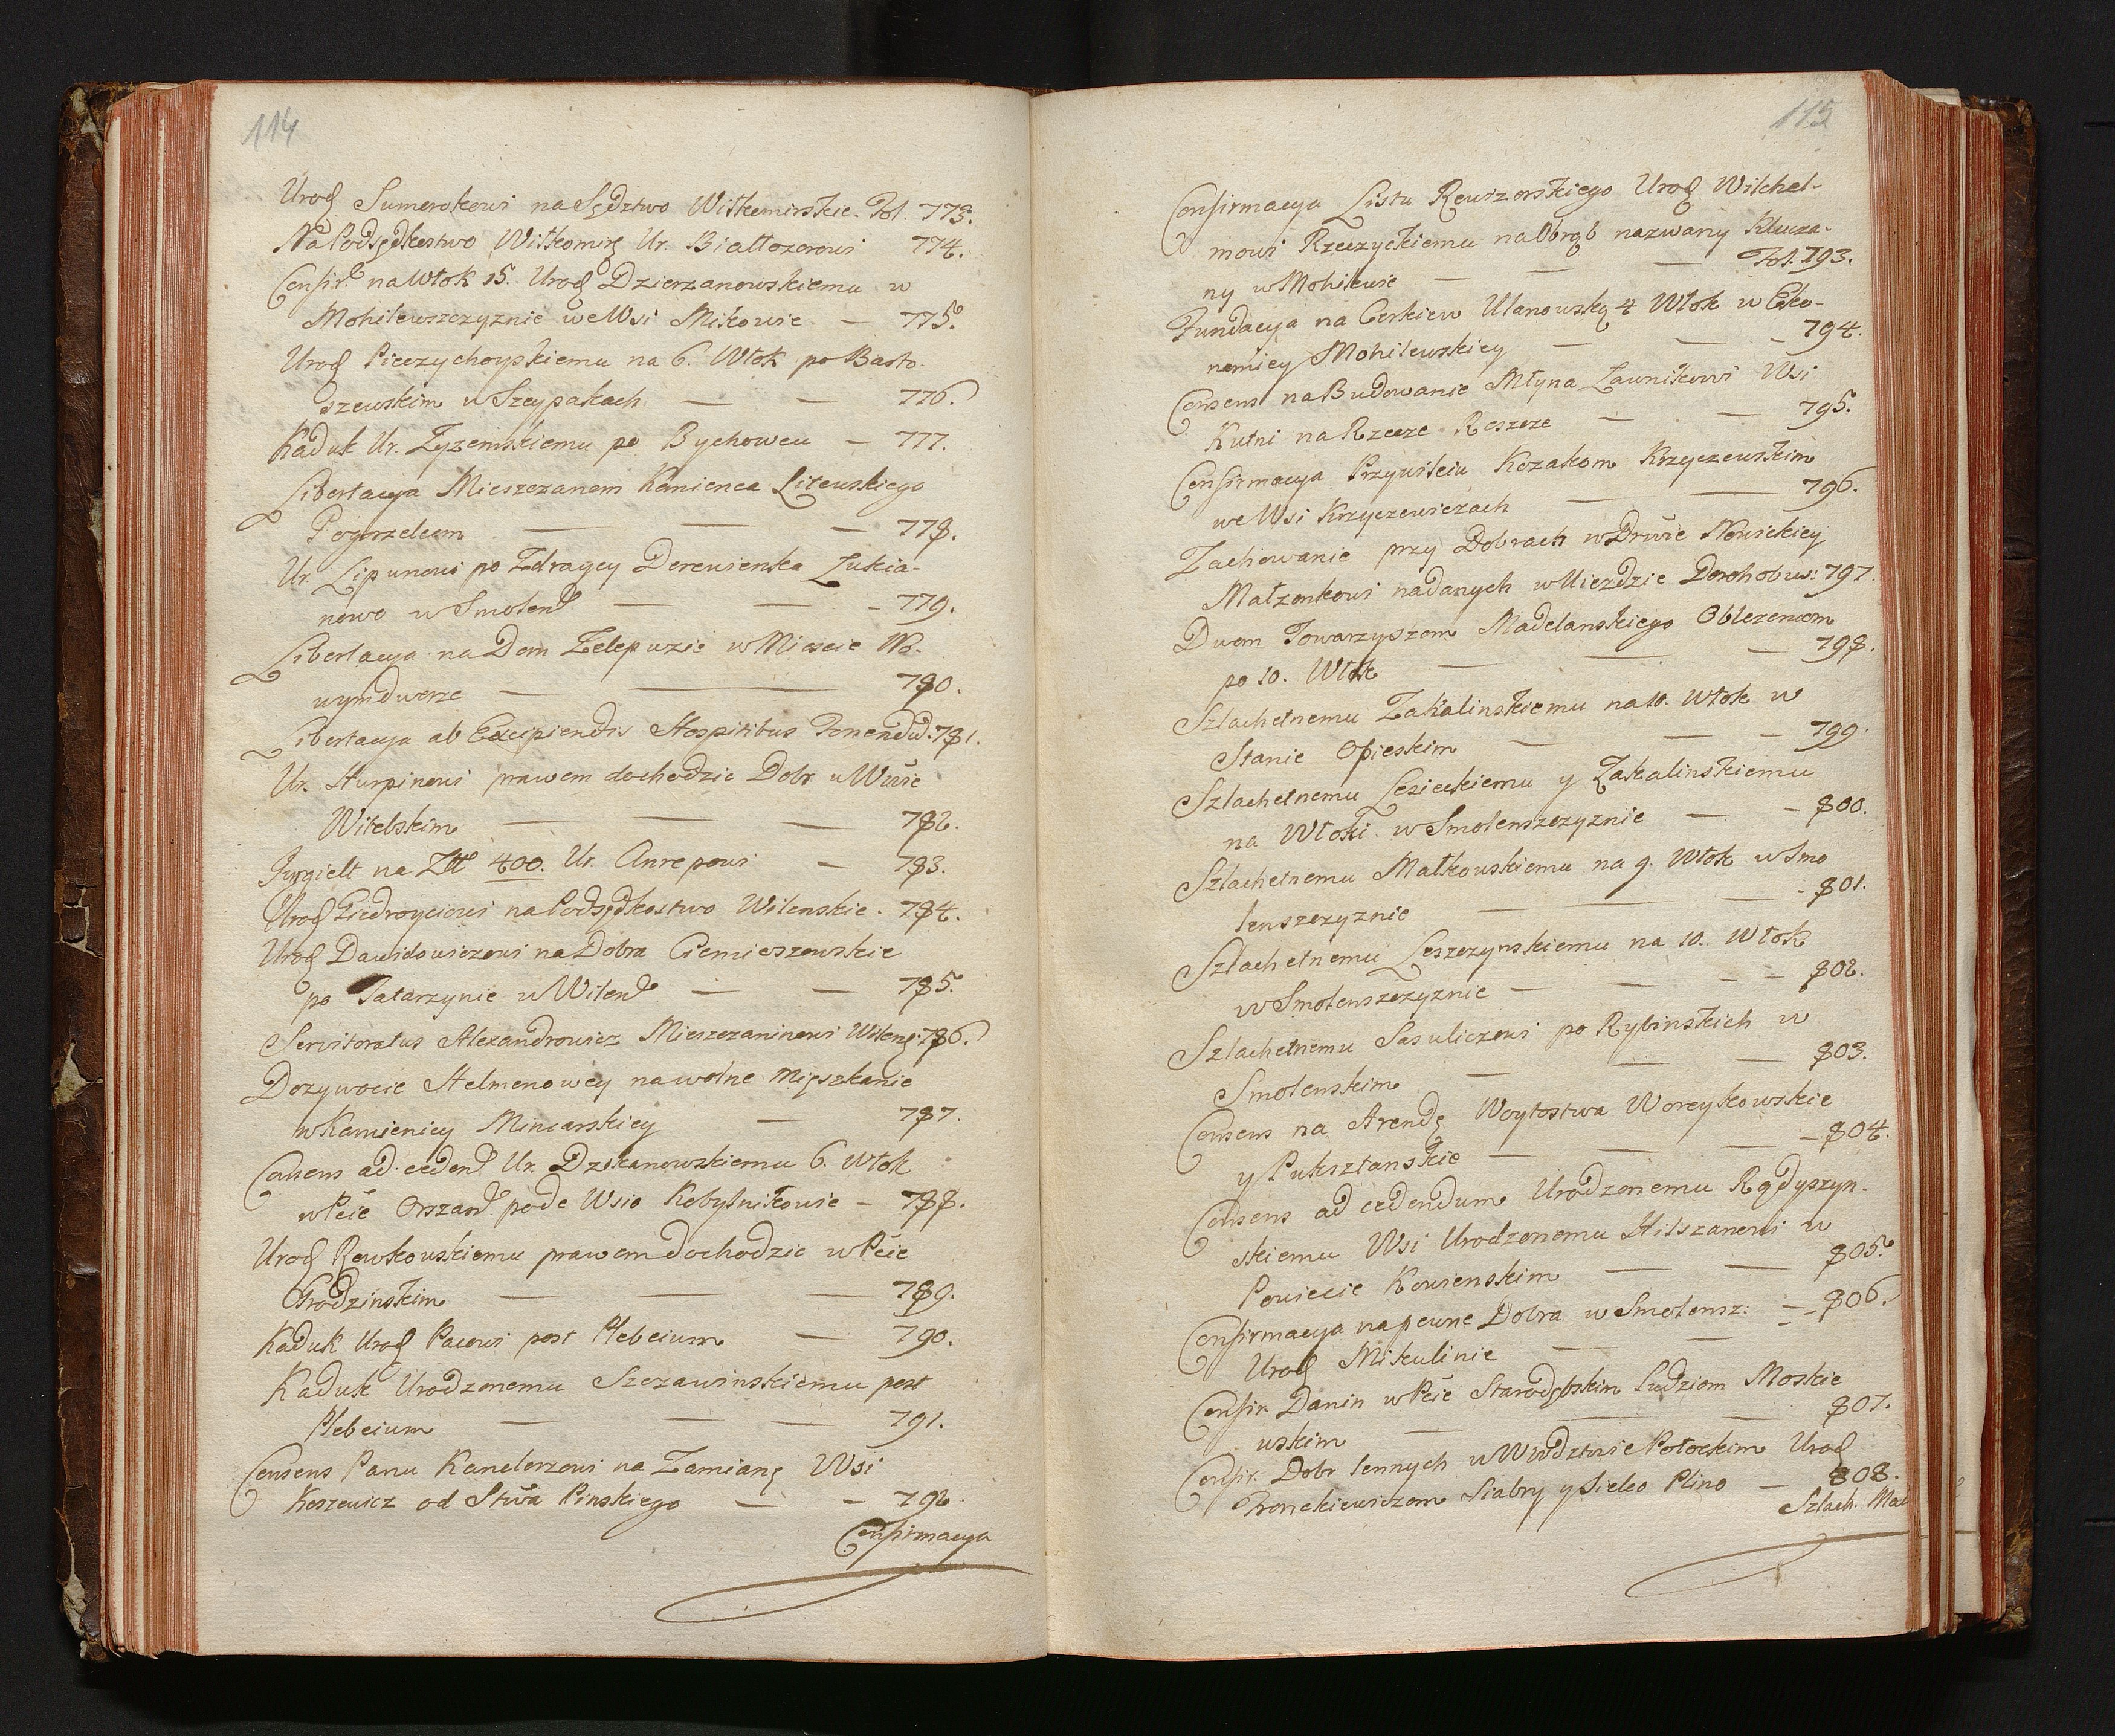 114
Urod Sumorokowi na Sędztwo Wiłkomirskie. Fol. 773.
Na Podsędkostwo Wiłkomirs Ur. Białłozorowi 774.
Confir. na Włok 15. Urod Dzierzanowskiemu w
Mohilewszczyznie we Wsi Mikowie — 775.
Urod Pieczychoyskiemu na 6. Włok po Barto-
szewskim w Szeypakach — — 776.
Kaduk Ur. Zyzemskiemu po Bychowcu — 777.
Libertacya Mieszczanom Kamienca Litewskiego
Pogorzelcom — — — 778.
Ur. Lipunowi po Zdraycy Derewienka Łukia-
nowo w Smolen — — — 779.
Libertacya na Dom Zelepuzie w Miescie No-
wymdworze — — 780.
Libertacya ab Excipiendis Hospitibus 781.
Ur. Hurpinowi prawem dochodzic Dobr w Wwie
Witebskim — — — 782.
Jurgielt na Złł 400. Ur. Anrepowi — 783.
Urod Giedroyciowi na Podsędkostwo Wilenskie. 784.
Urod Dawidowiczowi na Dobra Ciemieszewskie
po Tatarzynie w Wilen — — 785.
Servitoratus Alexandrowicz Mieszczaninowi Wilens: 786.
Dozywocie Helmenowey na wolne Mięszkanie
w Kamienicy Mincarskiey — 787.
Consens ad cedend Ur. Dzikanowskiemu 6. Włok
w Pcie Orszan pode Wsio Kobylnikowie — 788.
Urod Rewkowskiemu prawem dochodzic w Pcie
Grodzinskim — — — 789.
Kaduk Urod Pacowi post Plebeium — 790.
Kaduk Urodzonemu Szczawinskiemu post
Plebeium — — — 791.
Consens Panu Kanclerzowi na Zamianę Wsi
Koszewicz od Stwa Pinskiego — — 792.
Confirmacya
115
Confirmacya Listu Rewizorskiego Urod Wilchel-
mowi Rzeczyckiemu na Obrąb nazwany Klucza-
ny w Mohilewie — — — Fol. 793.
Fundacya na Cerkiew Ulanowską 4 Włok w Eko-
nomiey Mohilewskiey — — — 794.
Consens na Budowanie Młyna Ławnikowi Wsi
Kutni na Rzecze Reszcze — — 795.
Confirmacya Przywileiu Kozakom Krzyczewskim
we Wsi Krzyczewiczach — — 796.
Zachowanie przy Dobrach w Drwie Nowickiey
Małzonkowi nadanych w Uiezdzie Dorohobus: 797.
Dwom Towarzyszom Madelanskiego Oblezencom
po 10. Włok — — — 798.
Szlachetnemu Zakalinskiemu na 10. Włok w
Stanie Opieskim — — — 799.
Szlachetnemu Lesieckiemu y Zakalinskiemu
na Włoki w Smolenszczyznie — — 800.
Szlachetnemu Małkowskiemu na 9. Włok w Smo
lenszczyznie — — — 801.
Szlachetnemu Leszczynskiemu na 10. Włok
w Smolenszczyznie — — — 802.
Szlachetnemu Sasuliczowi po Rybinskich w
Smolenskim — — — 803.
Consens na Arendę Woytostwa Woreykowskie
y Puksztanskie — — — 804.
Consens ad cedendum Urodzonemu Rądyszyn-
skiemu Wsi Urodzonemu Hilszanowi w
Powiecie Kowienskim — — 805.
Confirmacya na pewne Dobra w Smolensz: — 806.
Urod Mikulinie — —
Confir. Danin w Pcie Starodębskim Ludziom Moskie
wskim — — — 807.
Confir. Dobr lennych w Wwdztwie Połockim Urod
Pronckiewiczom Siabry y Sielco Plino — 808.
Szlach. Mal